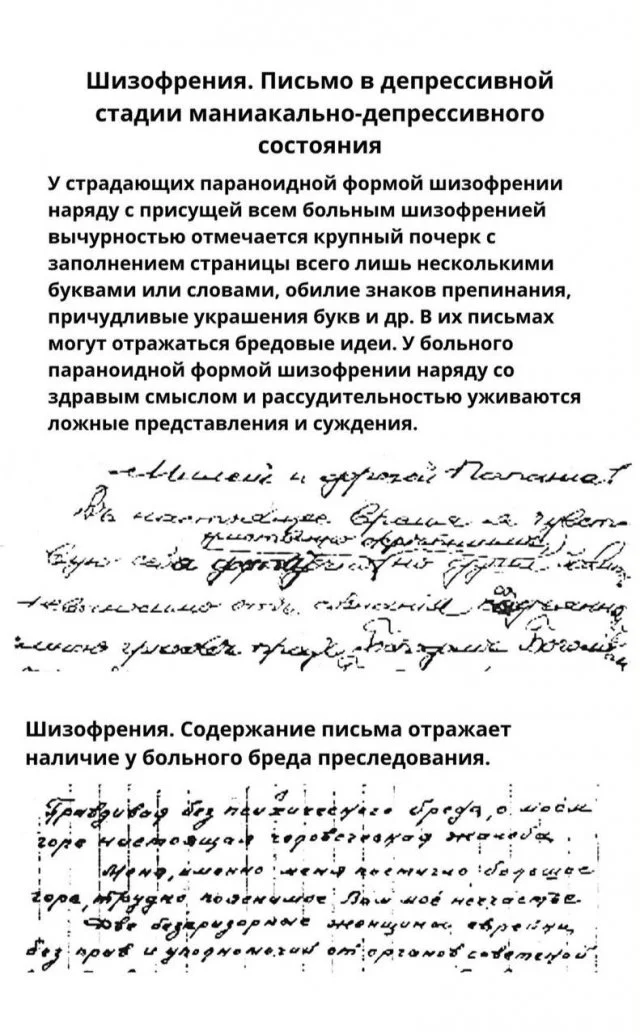 Шизофрения. Письмо в депрессивной
стадии маниакально-депрессивного
состояния
У страдающих параноидной формой шизофрении
наряду с присущей всем больным шизофренией
вычурностью отмечается крупный почерк с
заполнением страницы всего лишь несколькими
буквами или словами, обилие знаков препинания,
причудливые украшения букв и др. В их письмах
могут отражаться бредовые идеи. У больного
параноидной формой шизофрении наряду со
здравым смыслом и рассудительностью уживаются
ложные представления и суждения.
Милый и дорогой Папаша!
Въ настоящее время я чувст-
вую себя
невыносимо отъ
Шизофрения. Содержание письма отражает
наличие у больного бреда преследования.
Правдивая без психического бреда, о моем
горе настоящая человеческая жалоба.
Меня, именно меня постигло большое
горе, трудно пояснимое Вам моё несчастье.
Две безпризорные женщины еврейки,
без прав и уполномочий от органов советской